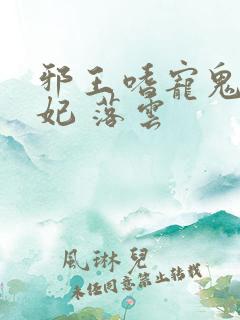 邪王嗜寵鬼
妃 落雲
風琳兒
未任同意禁止转载